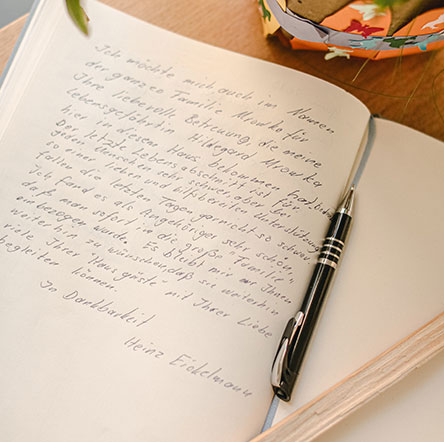 Ich möchte mich auch im Namen
der ganzen Familie Mrowka für
Ihre liebevolle Betreuung, die meine
Lebensgefährtin Hildegard Mrowka
hier in diesem Haus bekommen hat, bedanken.
Der letzte Lebensabschnitt ist für
den Menschen sehr schwer, aber bei
so einer lieben und hilfsbereiten Unterstützung
fallen die letzten Tage garnicht so schwer.
Ich fand es als Angehöriger sehr schön,
daß man sofort in die große "Familie"
einbezogen wurde. Es bleibt mir nur Ihnen
weiterhin, zu wünschen, daß sie weiterhin
viele Ihrer "Hausgäste" mit Ihrer Liebe
begleiten können.
In Dankbarkeit
Heinz Eickelmann